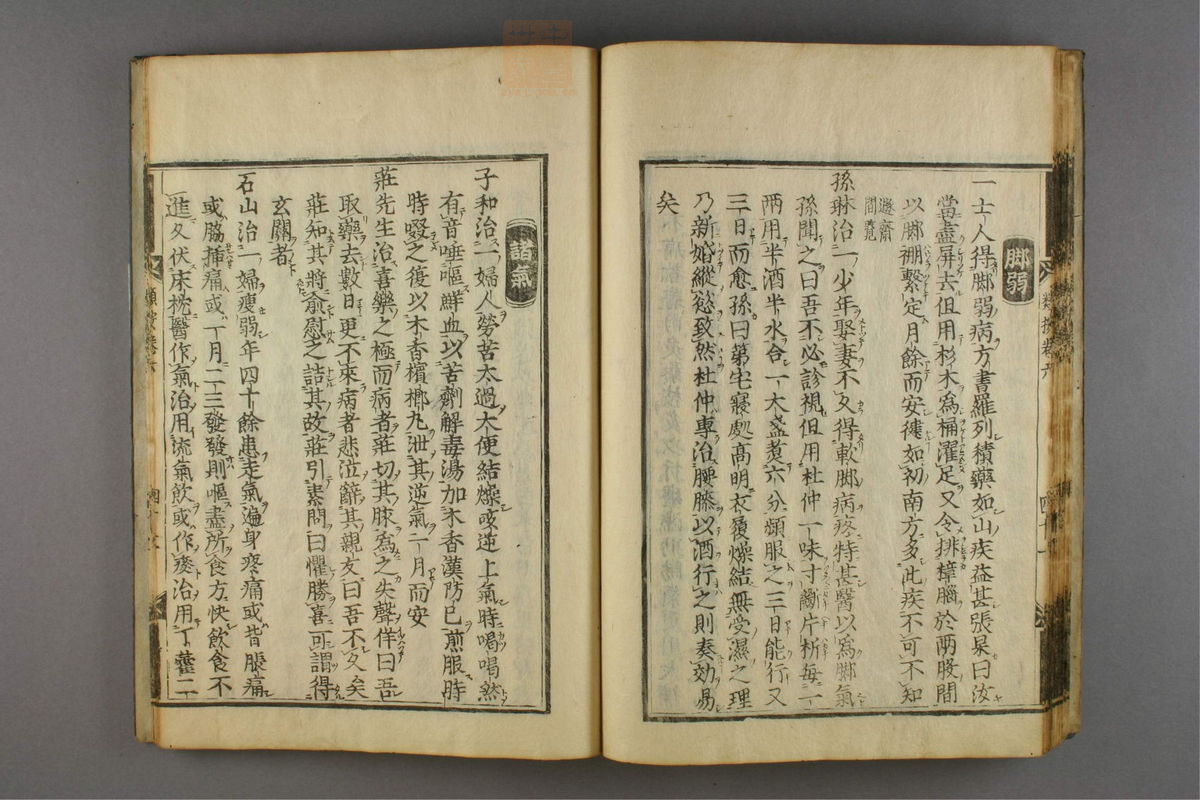 脚弱
一士人得脚弱病方書羅列積藥如山疾益甚張杲曰汝
當盡屏去但用杉木爲桶濯足又令排樟腦於兩股間
以脚棚繫定月餘而安健如初南方多此疾不可不知
遯齋
間覽
孫琳治一少年娶妻不久得軟脚病疼特甚醫以爲脚氣
孫聞之曰吾不必診視但用杜仲一味寸斷片析每一
兩用半酒半水合一大盞煮六分頻服之三日能行又
三日而愈孫曰第宅寢處高明衣履燥結無受濕之理
乃新婚縱慾致然杜仲專治腰膝以酒行之則奏効易
矣
諸氣
子和治一婦人勞苦太過大便結燥咳逆上氣時喝喝然
有音唾嘔鮮血以苦劑解毒湯加木香漢防已煎服時
時啜之復以木香檳榔丸泄其逆氣一月而安
莊先生治喜樂之極而病者莊切其脉爲之失聲佯曰吾
取藥去數日更不來病者悲泣辭其親友曰吾不久矣
莊知其將愈慰之詰其故莊引素問曰懼勝喜可謂得
玄關者
石山治一婦瘦弱年四十餘患走氣遍身疼痛或背脹痛
或脇揷痛或一月二三發發則嘔盡所食方快飲食不
進久伏床枕醫作氣治用流氣飲或作痰治用丁藿二